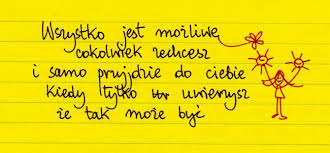 Wszystko jest możliwe
cokolwiek zechcesz
i samo przyjdzie do ciebie
kiedy tylko uwierzysz
że tak może być